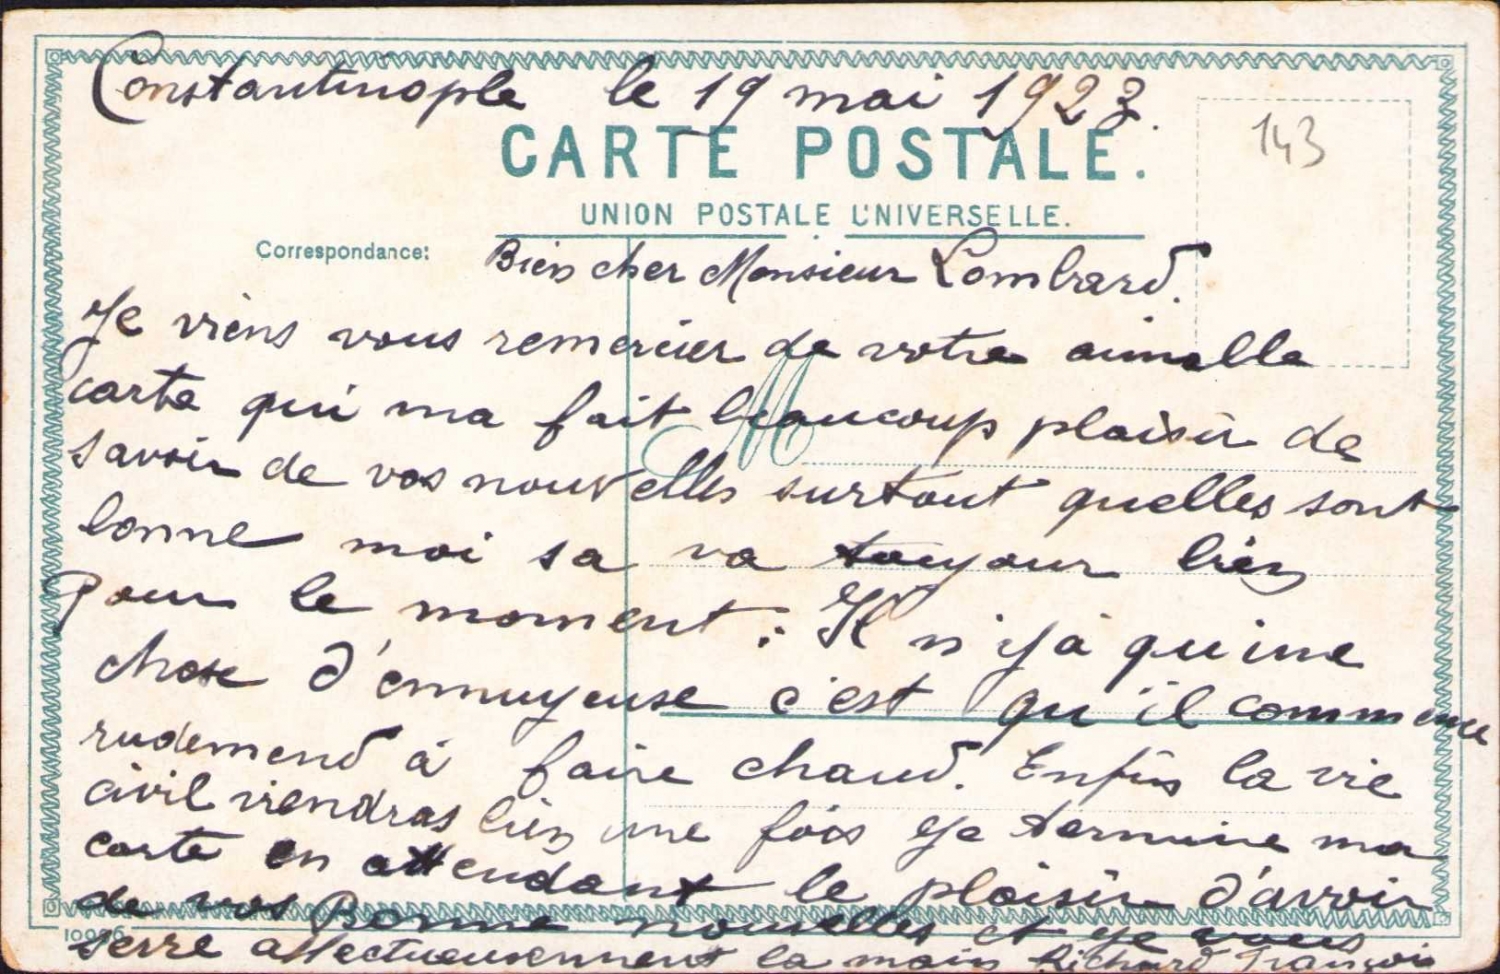 Constantinople le 19 mai 1923.
143
CARTE POSTALE.
UNION POSTALE UNIVERSELLE.
Correspondance:
Bien cher Monsieur Lombard.
Je viens vous remercier de votre aimable
carte qui ma fait beaucoup plaisir de
savoir de vos nouvelles surtout quelles sont
bonne moi sa va toujour bien
Pour le moment. Il n'yà qu'une
chose d'ennuyeuse c'est qu'il commence
rudemend à faire chaud. Enfin la vie
civil viendras bien une fois Je termine ma
carte en attendant le plaisir d'avoir
de vos Bonne nouvelles et je vous
10086
serre affectueusement la main Richard François